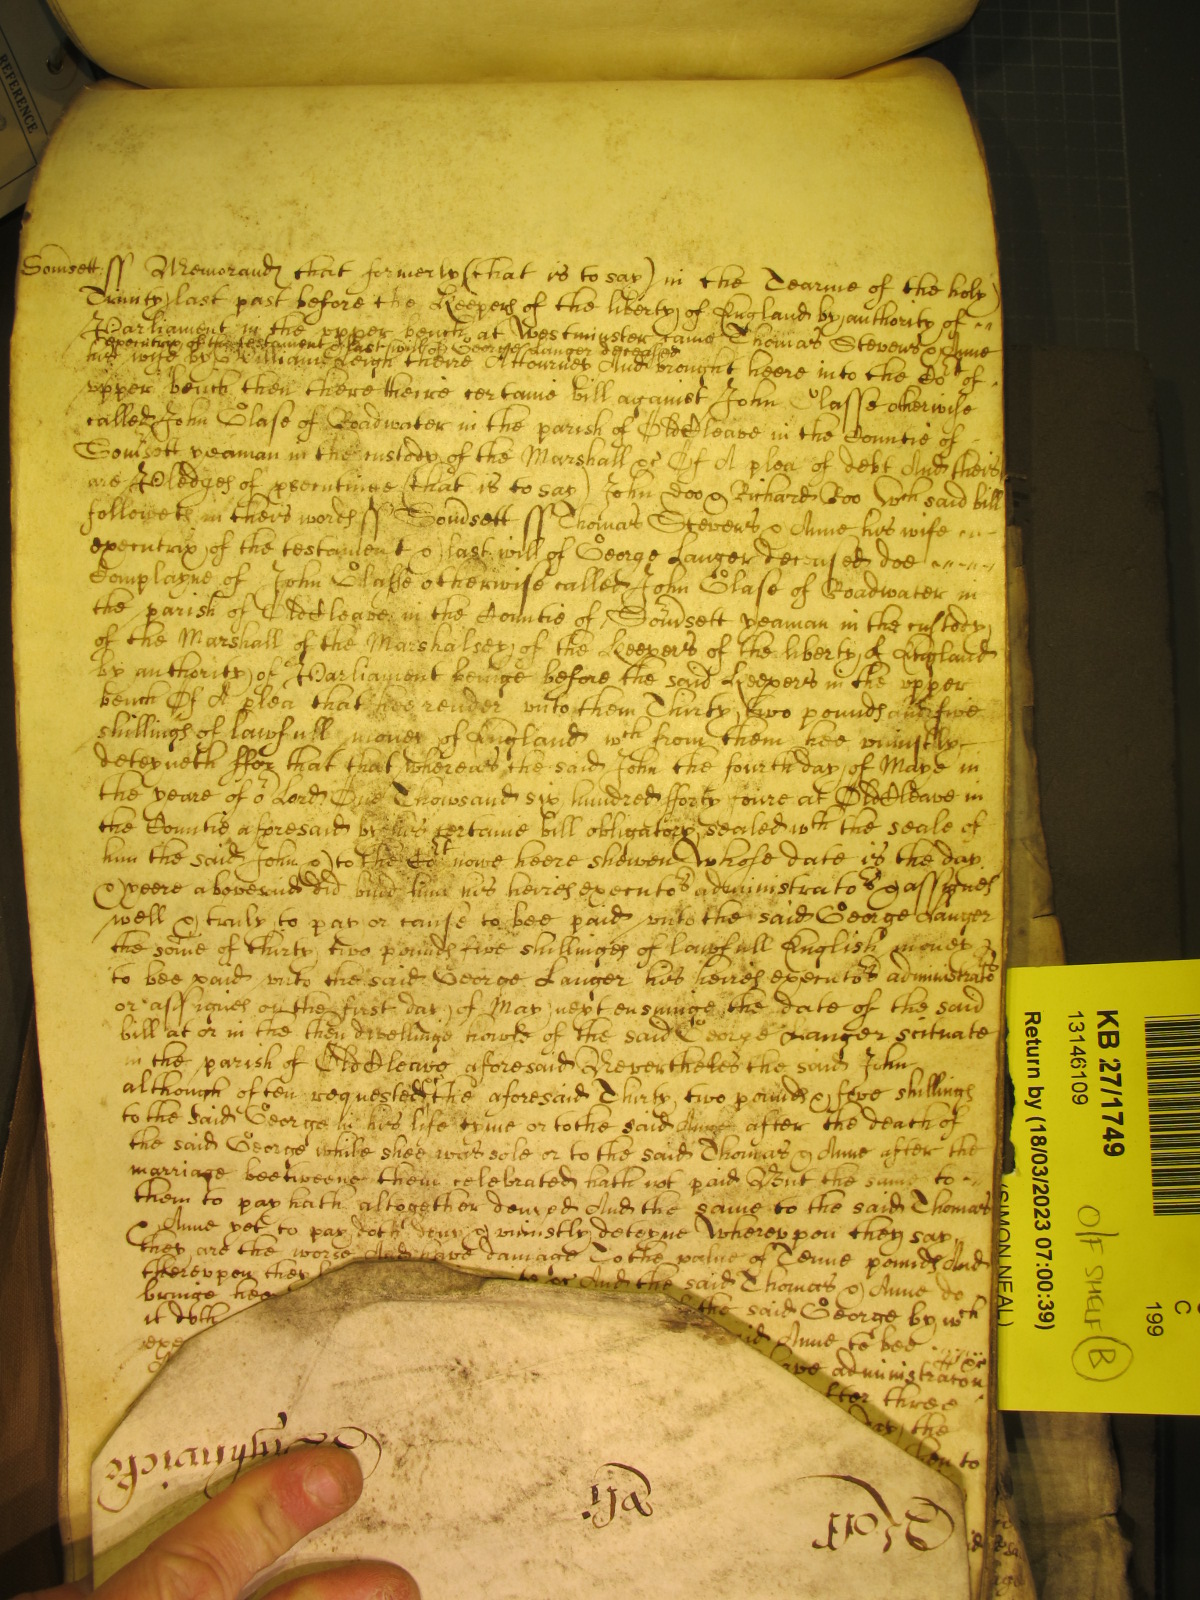 Somsett ss Memorand that formerly (that is to say) in the Tearme of the holy
Trinity last past before the Keepers of the liberty of England by authority of
Parliament in the upper bench at Westminster came Thomas Stevens & Anne
executrix of the testament & last will of George Langer deceased
his wife by William Leigh theire Attourney And brought heere into the Co^rt of
upper bench then there theire certaine bill against John Classe otherwise
called John Clase of Roadwater in the parish of Old Cleave in the Countie of
Somsett yeaman in the custody of the Marshall &c Of A plea of debt And theire
are Pledges of psecutinge (that is to say) John Doo & Richard Roo W^ch said bill
followeth in theis words ss Somsett ss Thomas Stevens & Anne his wife
executrix of the testament & last will of George Langer deceased doe
Complayne of John Classe otherwise called John Clase of Roadwater in
the parish of Old Cleave in the Countie of Somsett yeaman in the custody
of the Marshall of the Marshalsey of the Keepers of the liberty of England
by authority of Parliament beinge before the said Keepers in the upper
bench Of A plea that hee render unto them Thirty two pounds and five
shillings of lawfull money of England w^ch from them hee uniustly
deteyneth ffor that that whereas the said John the fourth day of Maye in
the yeare of o^r Lord One Thowsand six hundred fforty foure at Old Cleave in
the Countie aforesaid by his certaine bill obligatory sealed w^th the seale of
him the said John & to the Co^rt nowe heere shewen Whose date is the day
& yeere abovesaid did bind him his heires executo^rs administrato^rs & assignes
well & truly to pay or cause to bee paid unto the said George Langer
the some of thirty two pounds five shillinges of lawfull English money
to bee paid unto the said George Langer his heires executo^rs administrato^rs
or assignes on the first day of May next ensuinge the date of the said
bill at or in the then dwellinge howse of the said George Langer scituate
in the parish of Old Cleave aforesaid Nevertheles the said John
although often requested the aforesaid Thirty two pounds & five shillings
to the said George in his life tyme or to the said Anne after the death of
the said George while shee was sole or to the said Thomas & Anne after the
marriage beetweene them celebrated hath not paid But the same to
them to pay hath altogether denyed And the same to the said Thomas
& Anne yet to pay doth deny & uniustly deteyne Whereupon they say
they are the worse And have damage To the value of Tenne pounds And
thereupon they
bringe And the said Thomas & Anne do
it doth the said George by w^ch
exe said Anne to bee
administracon
three
the
to
Roll
REFERENCE
KB 27/1749
13146109
Return by (18/03/2023 07:00:39)
(SIMON NEAL)
O/F SHELF B
C
199